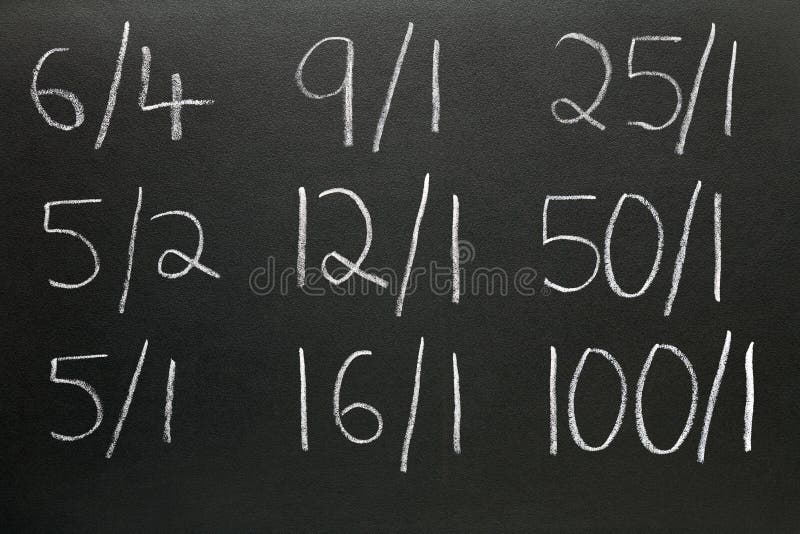 6/4 9/1 25/1
5/2 12/1 50/1
5/1 16/1 100/1
dreamstime